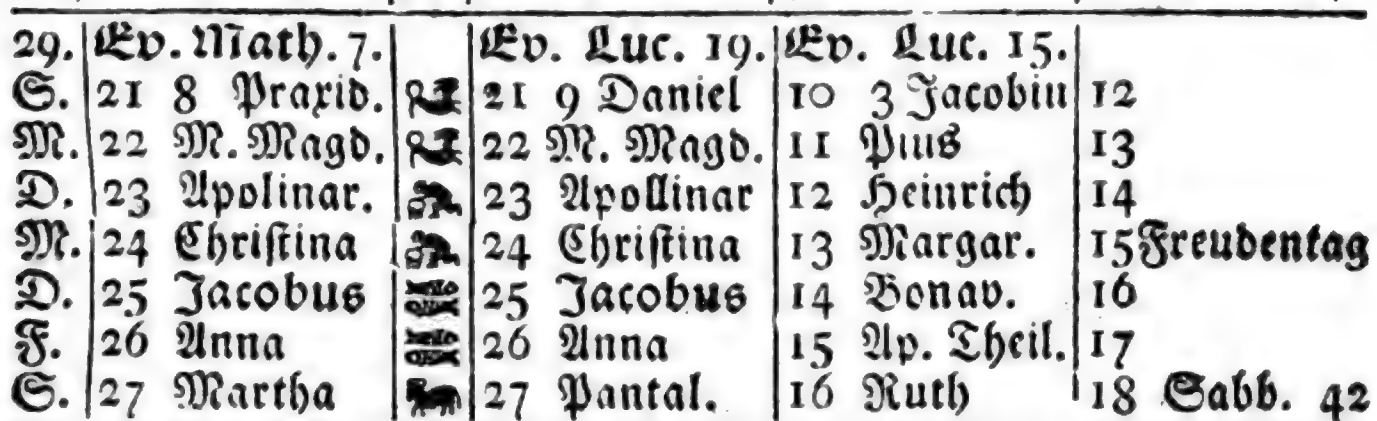 29. Ev. Math. 7. Ev. Luc. 19. Ev. Luc. 15.
S. 21 8 Praxid. 21 9 Daniel 10 3 Jacobin 12
M. 22 M. Magd. 22 M. Magd. 11 Pius 13
D. 23 Apolinar. 23 Apollinar 12 Heinrich 14
M. 24 Christina 24 Christina 13 Margar. 15 Freudentag
D. 25 Jacobus 25 Jacobus 14 Bonav. 16
F. 26 Anna 26 Anna 15 Ap. Theil. 17
S. 27 Martha 27 Pantal. 16 Ruth 18 Sabb. 42